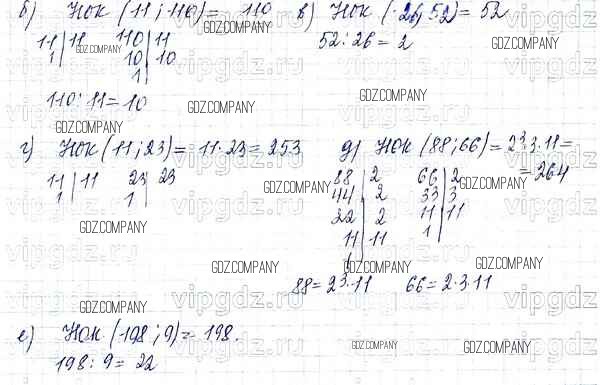 б) НОК (11; 110) = 110
11 | 11   110 | 11
1 |   10 | 10
1
110 : 11 = 10
в) НОК (26; 52) = 52
52 : 26 = 2
г) НОК (11; 23) = 11 · 23 = 253
11 | 11   23 | 23
1 |   1 |
д) НОК (88; 66) = 2³·3·11 =
= 264
88 | 2   66 | 2
44 | 2   33 | 3
22 | 2   11 | 11
11 | 11   1 |
1
88 = 2³·11   66 = 2·3·11
е) НОК (198; 9) = 198.
198 : 9 = 22
GDZ.COMPANY
vipgdz.ru